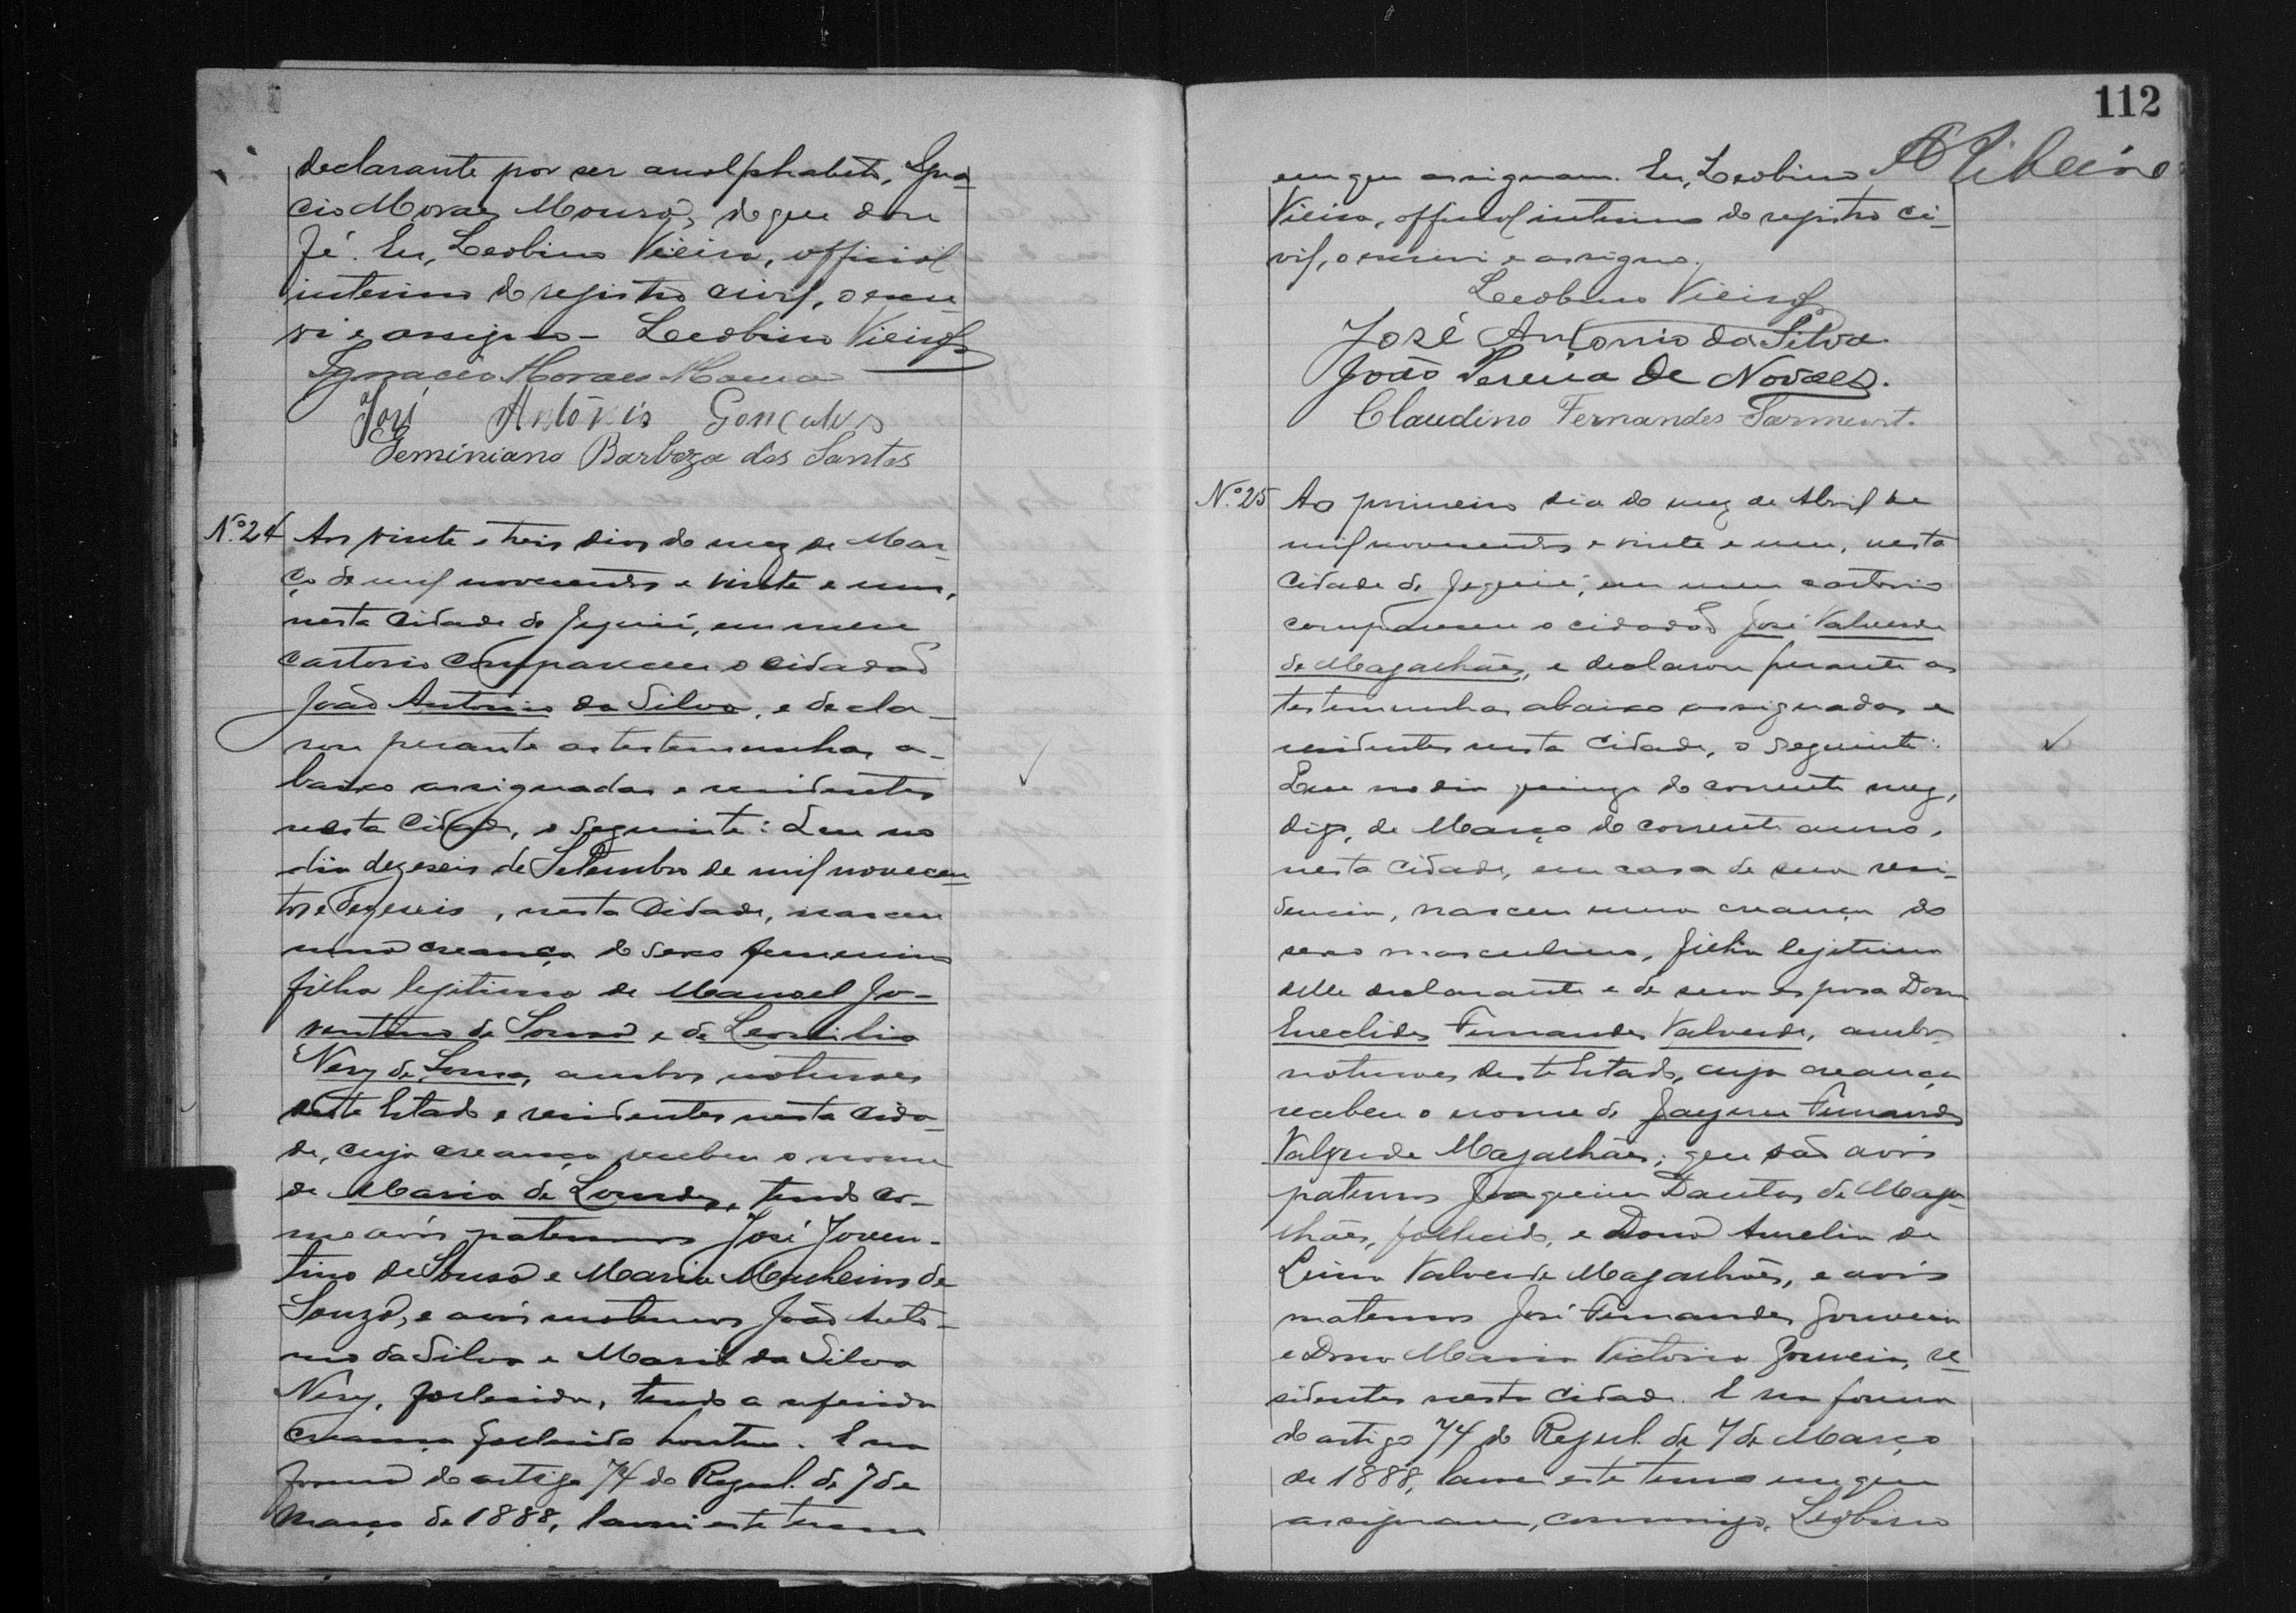 declarante por ser analphabeto, Igna-
cio Moraes Moura, do que dou
fé. Eu, Leobino Vieira, official
interino do registro civil, o escre-
vi e assigno - Leobino Vieira
Ignacio Moraes Moura
José Antônio Gonçalves
Geminiano Barboza dos Santos
Nº 24 Aos vinte e treis dias do mez de Mar-
ço de mil novecentos e vinte e um,
nesta Cidade de Jequié, em meu
cartorio compareceu o cidadão
João Antonio da Silva, e decla-
rou perante as testemunhas a-
baixo assignadas e residentes
nesta Cidade, o seguinte: Que no
dia dezeseis de Setembro de mil novecen-
tos e dezeseis, nesta Cidade, nasceu
uma creança do sexo feminino
filha legitima de Manoel Jo-
ventino de Souza e de Leonilia
Nery de Souza, ambos naturaes
deste Estado e residentes nesta cida-
de, cuja creança recebeu o nome
de Maria de Lourdes, tendo co-
mo avós paternos José Joven-
tino de Souza e Maria de
Souza, e avós maternos João Anto-
nio da Silva e Maria da Silva
Nery, fallecida, tendo a referida
creança fallecido hontem. E na
forma do artigo 74 do Regul. de 7 de
Março de 1888, lavrei este termo
112
em que assignam. Eu, Leobino A Ribeiro
Vieira, official interino do registro ci-
vil, o escrevi e assigno.
Leobino Vieira
José Antonio da Silva
João Pereira de Novaes.
Claudino Fernandes Sarmento
Nº 25 Ao primeiro dia do mez de Abril de
mil novecentos e vinte e um, nesta
Cidade de Jequié, em meu cartorio
compareceu o cidadão José Valverde
de Magalhães, e declarou perante as
testemunhas abaixo assignadas e
residentes nesta Cidade, o seguinte:
Que no dia quinze do corrente mez,
digo, de Março do corrente anno,
nesta Cidade, em casa de sua resi-
dencia, nasceu uma creança do
sexo masculino, filha legitima
delle declarante e de sua esposa Dona
Euclides Fernandes Valverde, ambos
naturaes deste Estado, cuja creança
recebeu o nome de Jayme Fernandes
Valverde Magalhães; que são avós
paternos Joaquim Dantas de Maga-
lhães, fallecido, e Dona Aurelia de
Lima Valverde Magalhães, e avós
maternos José Fernandes Gouveia
e Dona Maria Victoria Gouveia, re-
sidentes nesta Cidade. E na forma
do artigo 74 do Regul. de 7 de Março
de 1888, lavrei este termo em que
assignam, commigo, Leobino